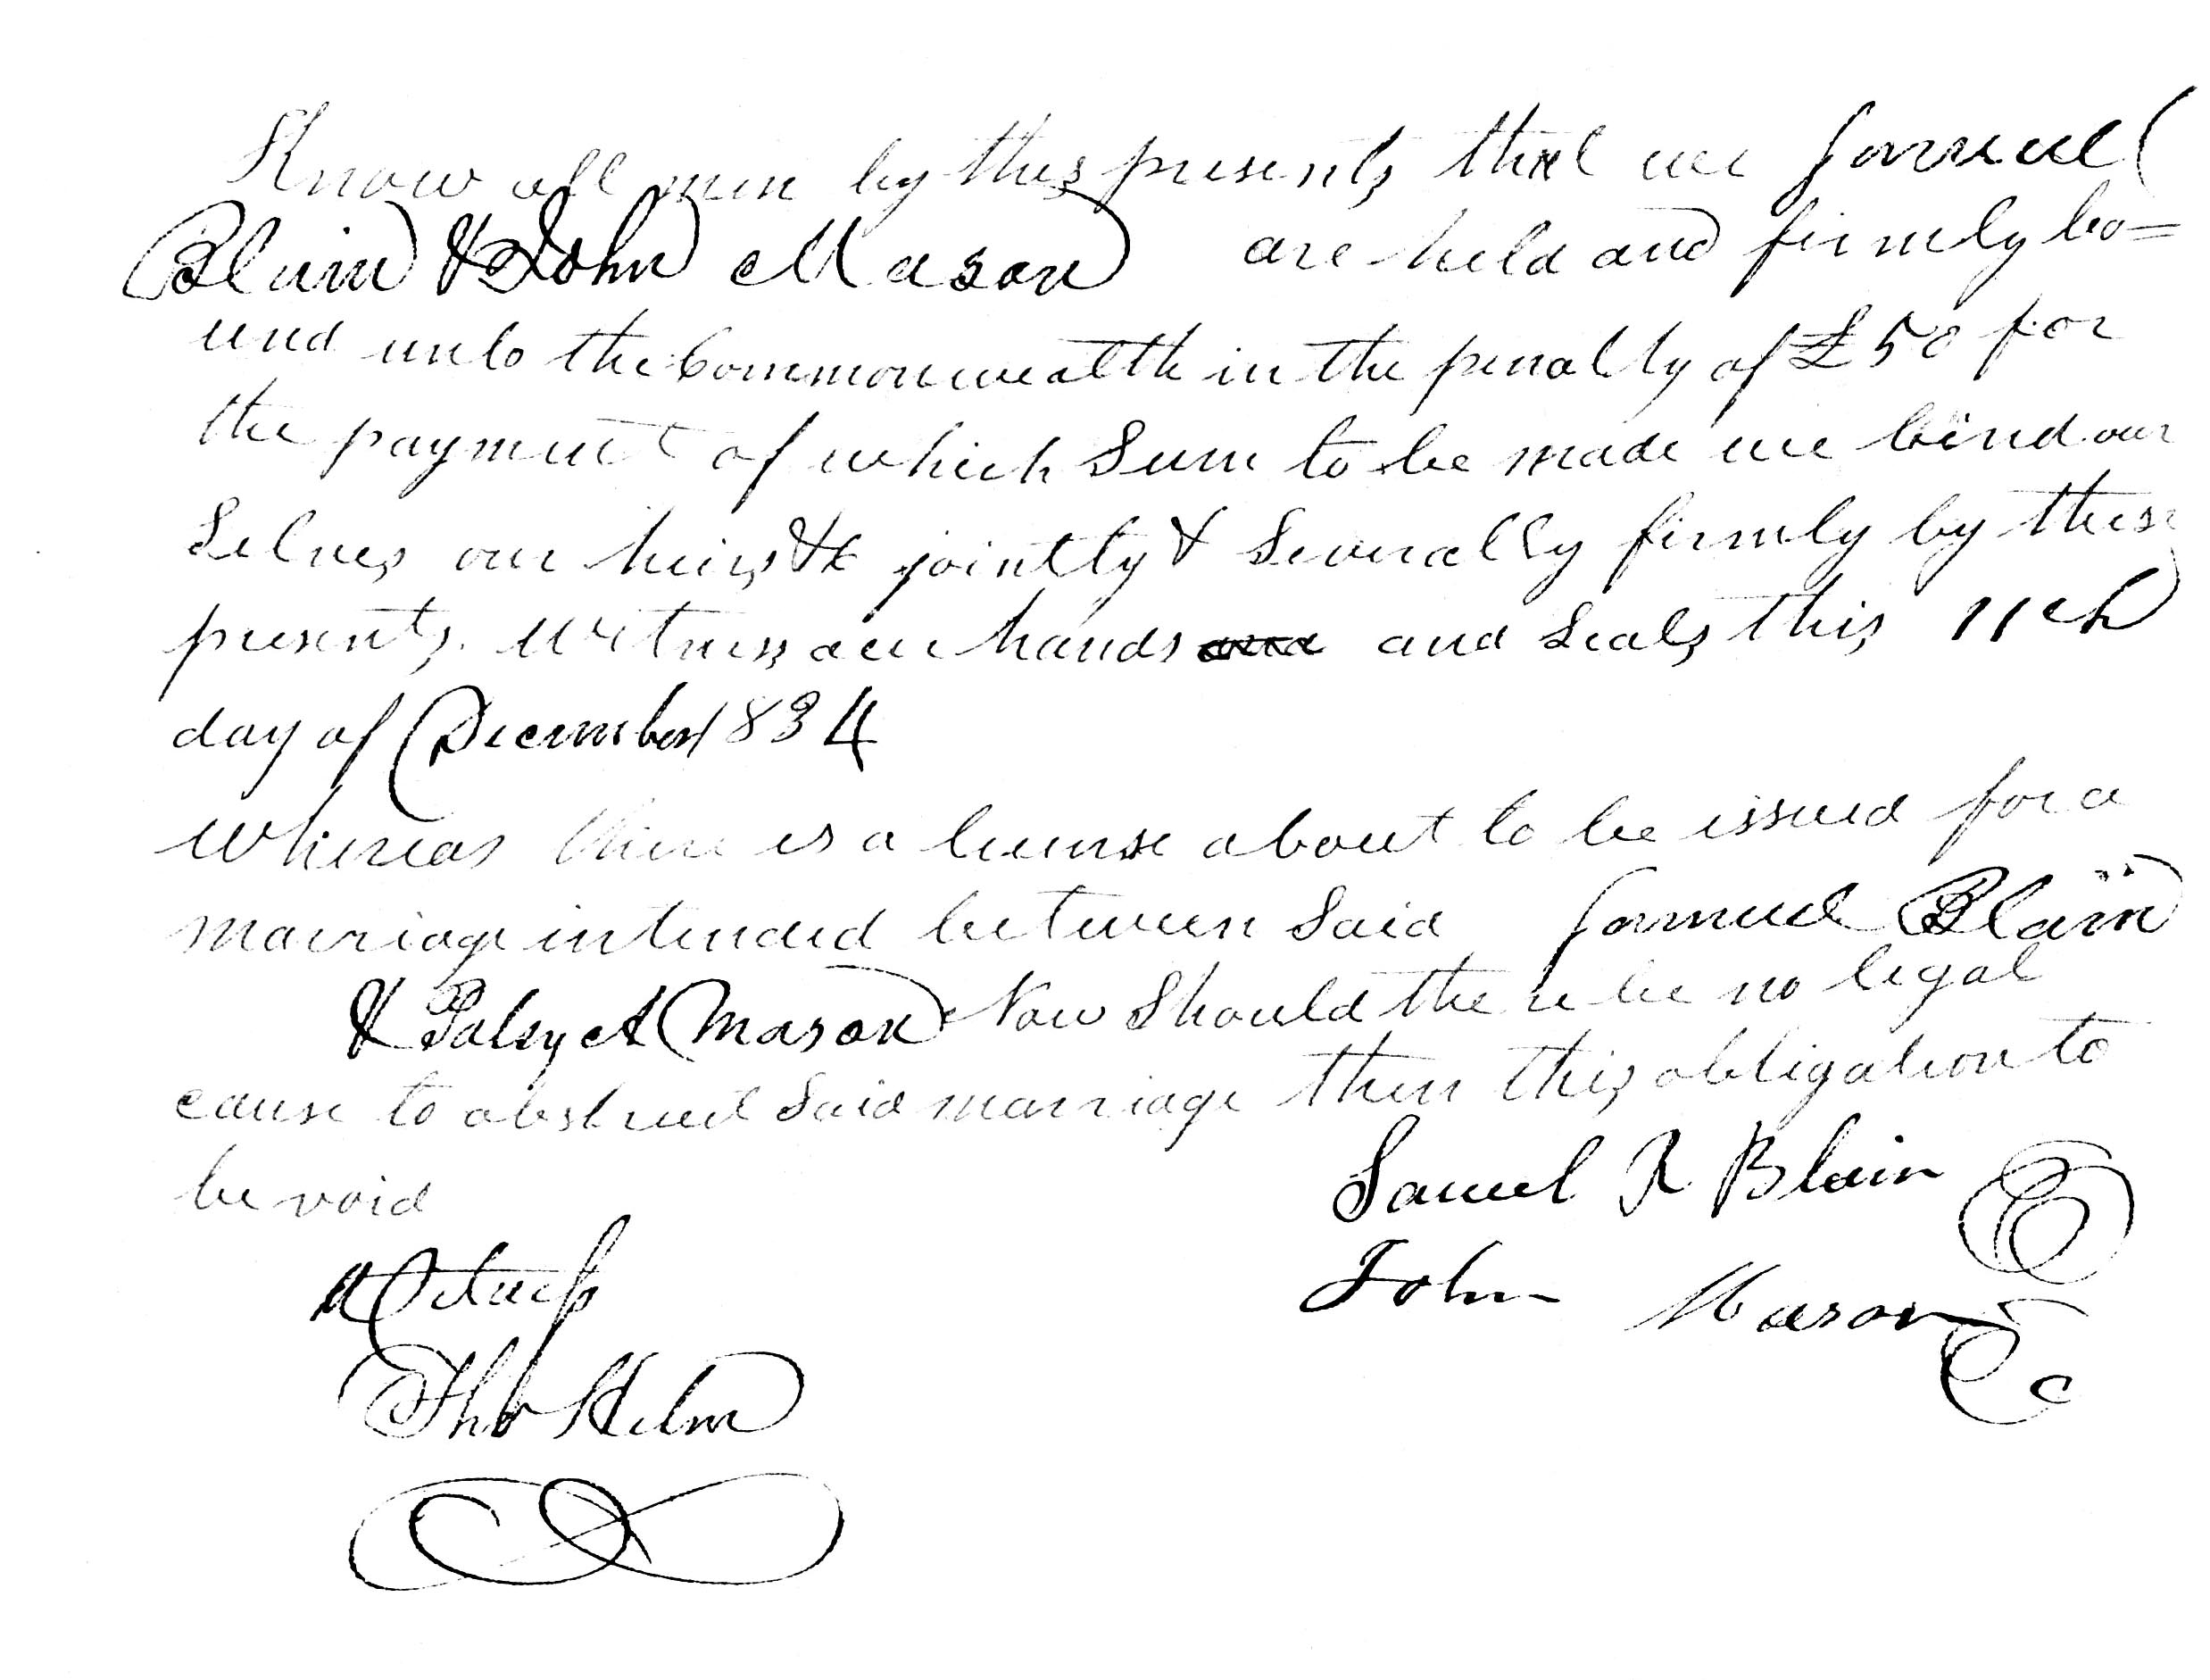 Know all men by thes presents that we Samuel
Blain & John Mason are held and firmly bo=
und unto the Commonwealth in the penalty of £50 for
the payment of which Sum to be made we bind our
Selves our heirs &c jointly & Severally firmly by these
presents. Witness our hands and and Seals this 11th
day of December 1834
Whereas there is a license about to be issued for a
marriage intended between Said Samuel Blain
& Patsy A Mason Now Should there be no legal
cause to obstruct Said marriage then this obligation to
be void
Samuel R Blain
John Mason
Tho Helm